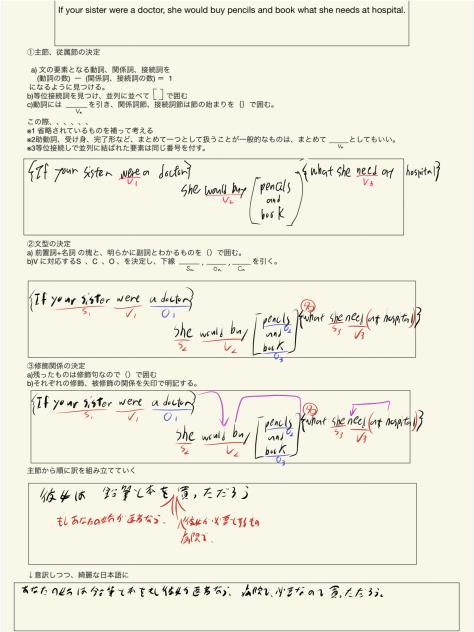 If your sister were a doctor, she would buy pencils and book what she needs at hospital.
①主節、従属節の決定
a) 文の要素となる動詞、関係詞、接続詞を
(動詞の数) ー (関係詞、接続詞の数) = 1
になるように見つける。
b)等位接続詞を見つけ、並列に並べて [ ] で囲む
c)動詞には ____ を引き、関係詞節、接続詞節は節の始まりを { } で囲む。
Vn
この際、、、、、、
※1 省略されているものを補って考える
※2助動詞、受け身、完了形など、まとめて一つとして扱うことが一般的なものは、まとめて ____ としてもいい。
Vn
※3等位接続して並列に結ばれた要素は同じ番号を付す。
{If your sister were a doctor}
V1
she would buy [pencils and book] {what she need at hospital}
V2 V3
②文型の決定
a) 前置詞+名詞 の塊と、明らかに副詞とわかるものを ( ) で囲む。
b)V に対応するS 、C 、O 、を決定し、下線 ____ , ____ , ____ を引く。
Sn On Cn
{If your sister were a doctor}
S1 V1 O1
she would buy [pencils and book] {what she need (at hospital)}
S2 V2 O2 O3 S3 V3
③修飾関係の決定
a)残ったものは修飾句なので ( ) で囲む
b)それぞれの修飾、被修飾の関係を矢印で明記する。
{If your sister were a doctor}
S1 V1 O1
she would buy [pencils and book] {what she need (at hospital)}
S2 V2 O2 O3 S3 V3
主節から順に訳を組み立てていく
彼女は 鉛筆と本を買っただろう
もしあなたの姉が医者なら、
病院で
↓意訳しつつ、綺麗な日本語に